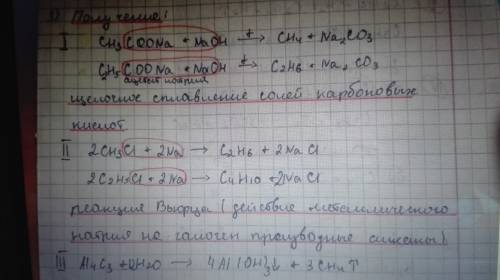 1) Получение!
I CH3COONa + NaOH →t CH4 + Na2CO3
C2H5COONa + NaOH →t C2H6 + Na2CO3
ацетат натрия
щелочное сплавление солей карбоновых
кислот
II 2CH3Cl + 2Na → C2H6 + 2NaCl
2C2H5Cl + 2Na → C4H10 + 2NaCl
реакция Вюрца (действие металлического
натрия на галоген производные
III Al4C3 + 12H2O → 4Al(OH)3↓ + 3CH4↑